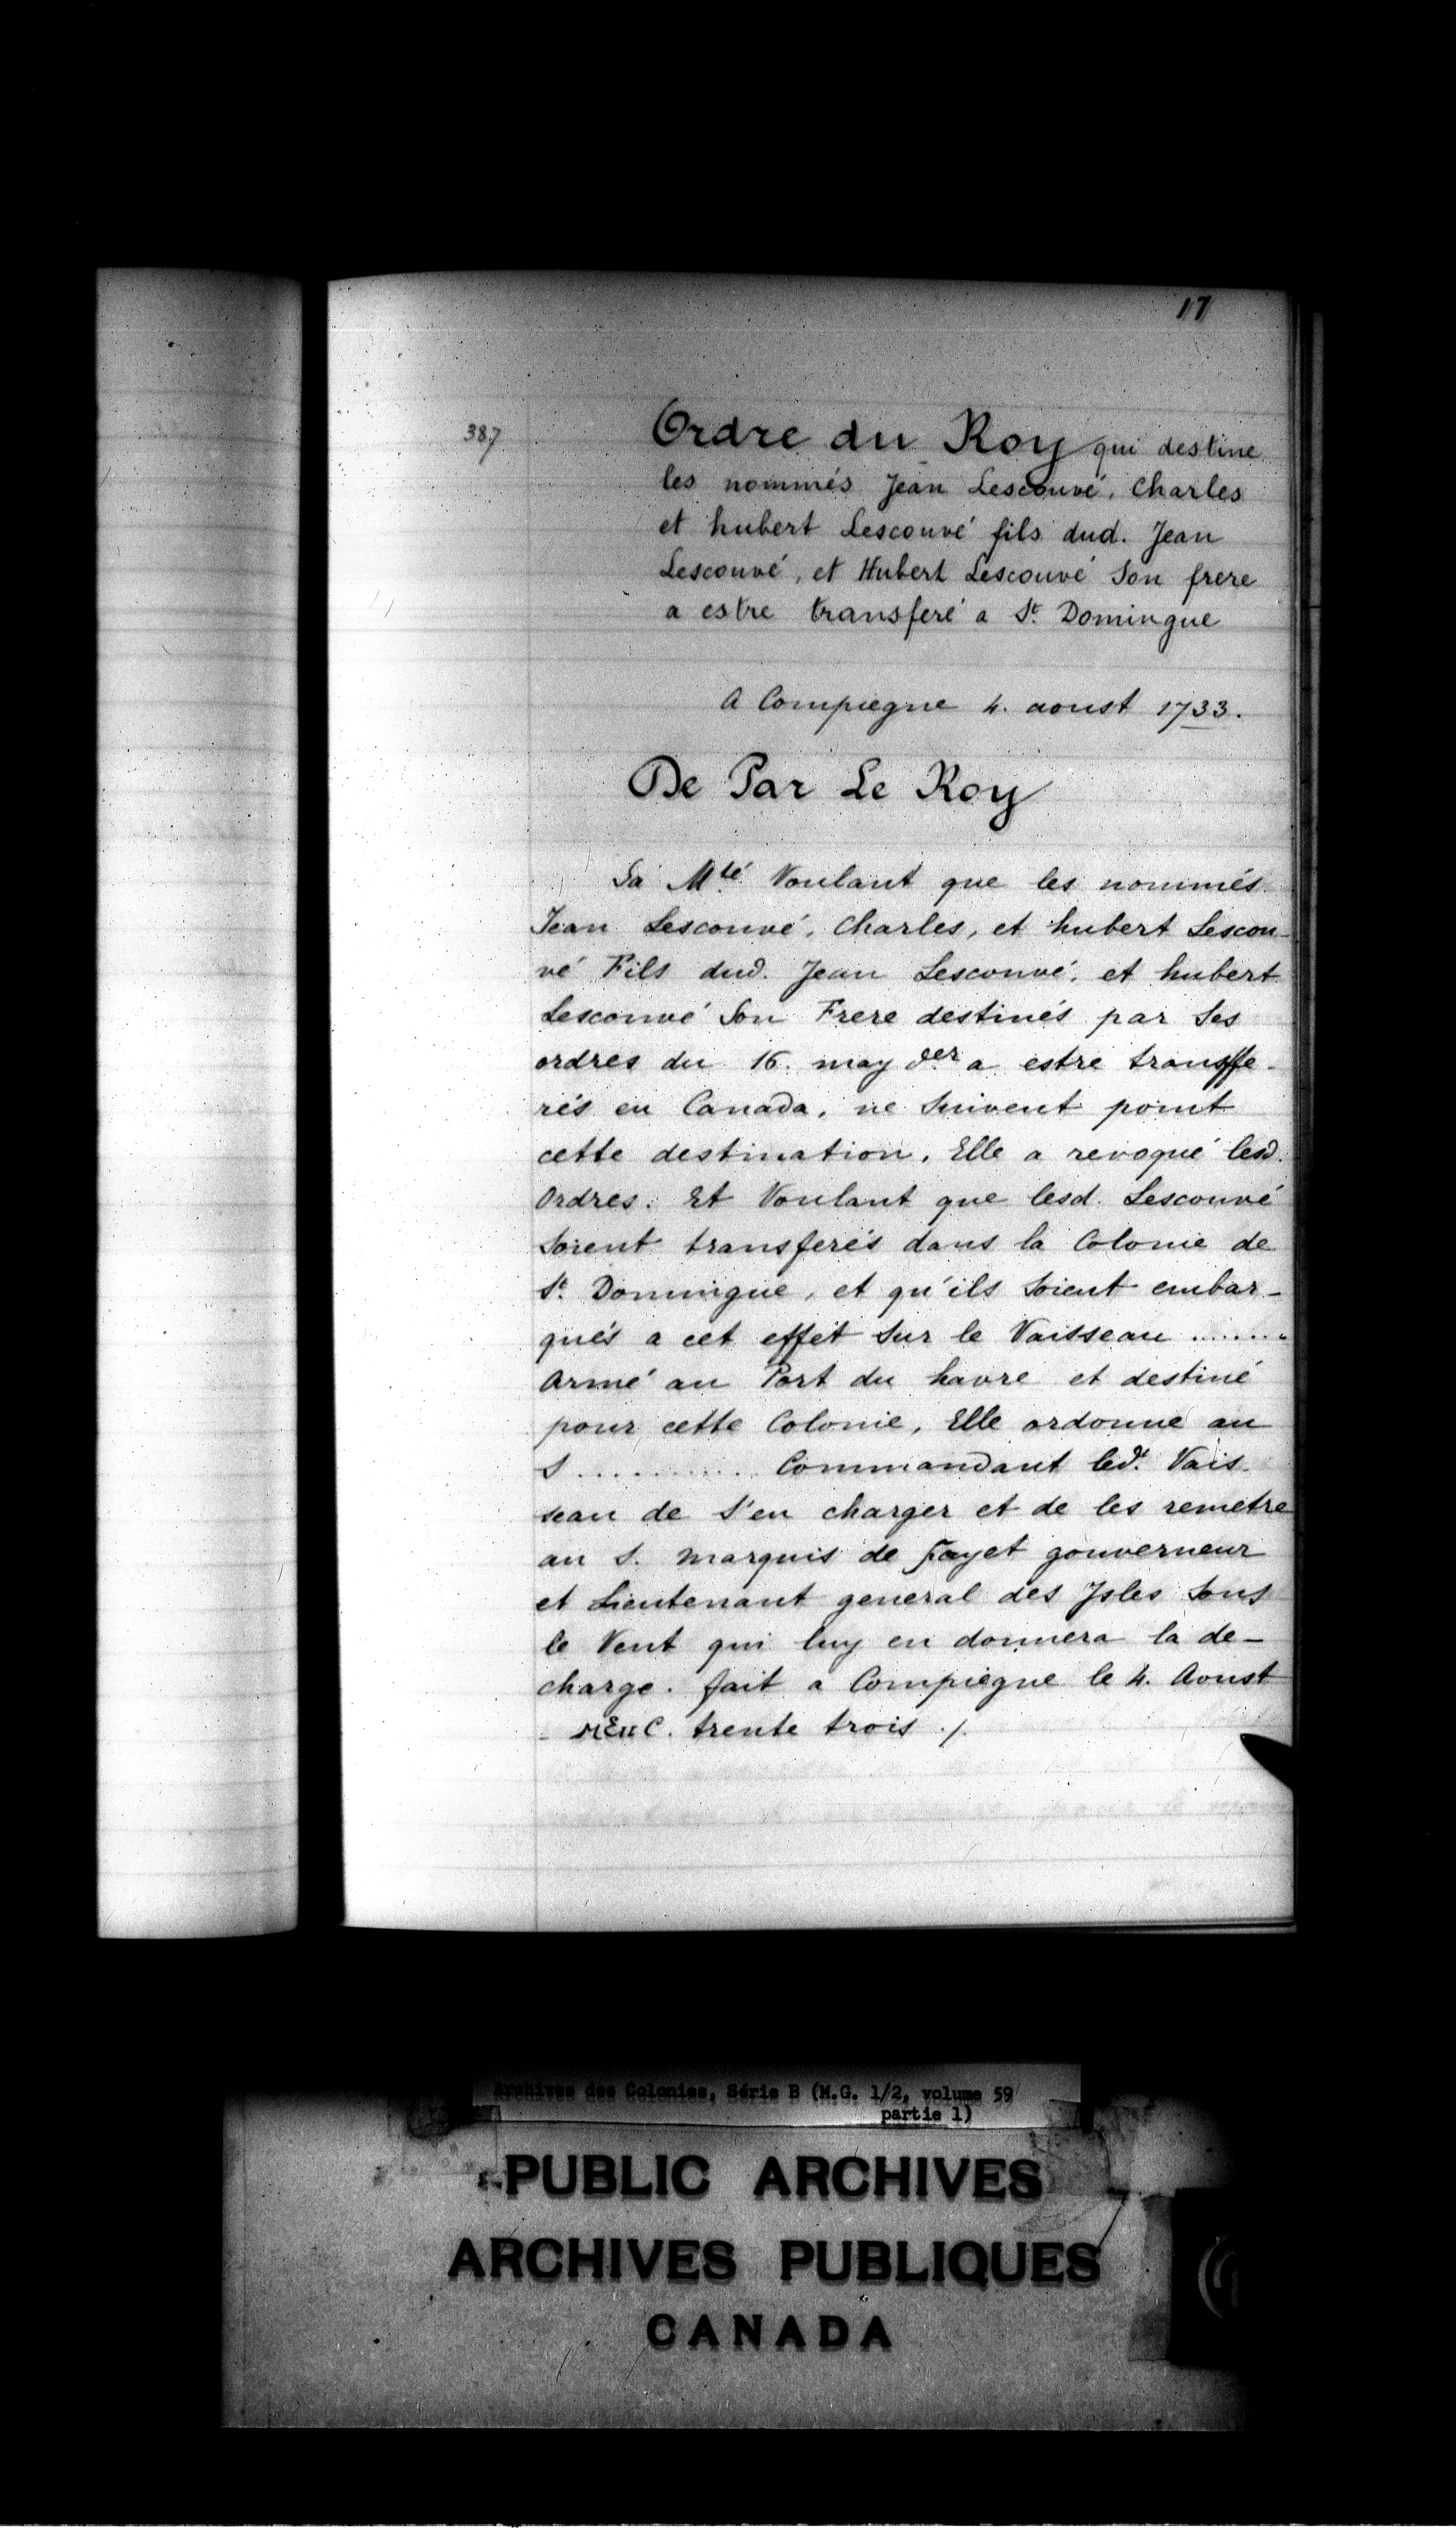 17
387
Ordre du Roy qui destine
les nommés Jean Lescouvé, Charles
et hubert Lescouvé fils dud. Jean
Lescouvé, et Hubert Lescouvé Son frere
a estre transferé a St. Domingue
A Compiegne 4. aoust 1733.
De Par Le Roy
Sa Mté Voulant que les nommés
Jean Lescouvé, Charles, et hubert Lescou-
vé Fils dud. Jean Lescouvé, et hubert
Lescouvé Son Frere destinés par Ses
ordres du 16. may der a estre transffe-
rés en Canada, ne Suivent point
cette destination, Elle a revoqué lesd.
Ordres. Et Voulant que lesd. Lescouvé
Soient transferés dans la Colonie de
St. Domingue, et qu'ils Soient embar-
qués a cet effet Sur le Vaisseau ........
Armé au Port du havre et destiné
pour cette Colonie, Elle ordonne au
S............. Commandant led.t Vais-
seau de S'en charger et de les remetre
au S. marquis de fayet gouverneur
et Lieutenant general des Jsles Sous
le Vent qui luy en donnera la de-
charge. fait a Compiegne le 4. Aoust
trente trois ./.
Archives des Colonies, Série B (M.G. 1/2, volume 59
partie 1)
PUBLIC ARCHIVES
ARCHIVES PUBLIQUES
CANADA